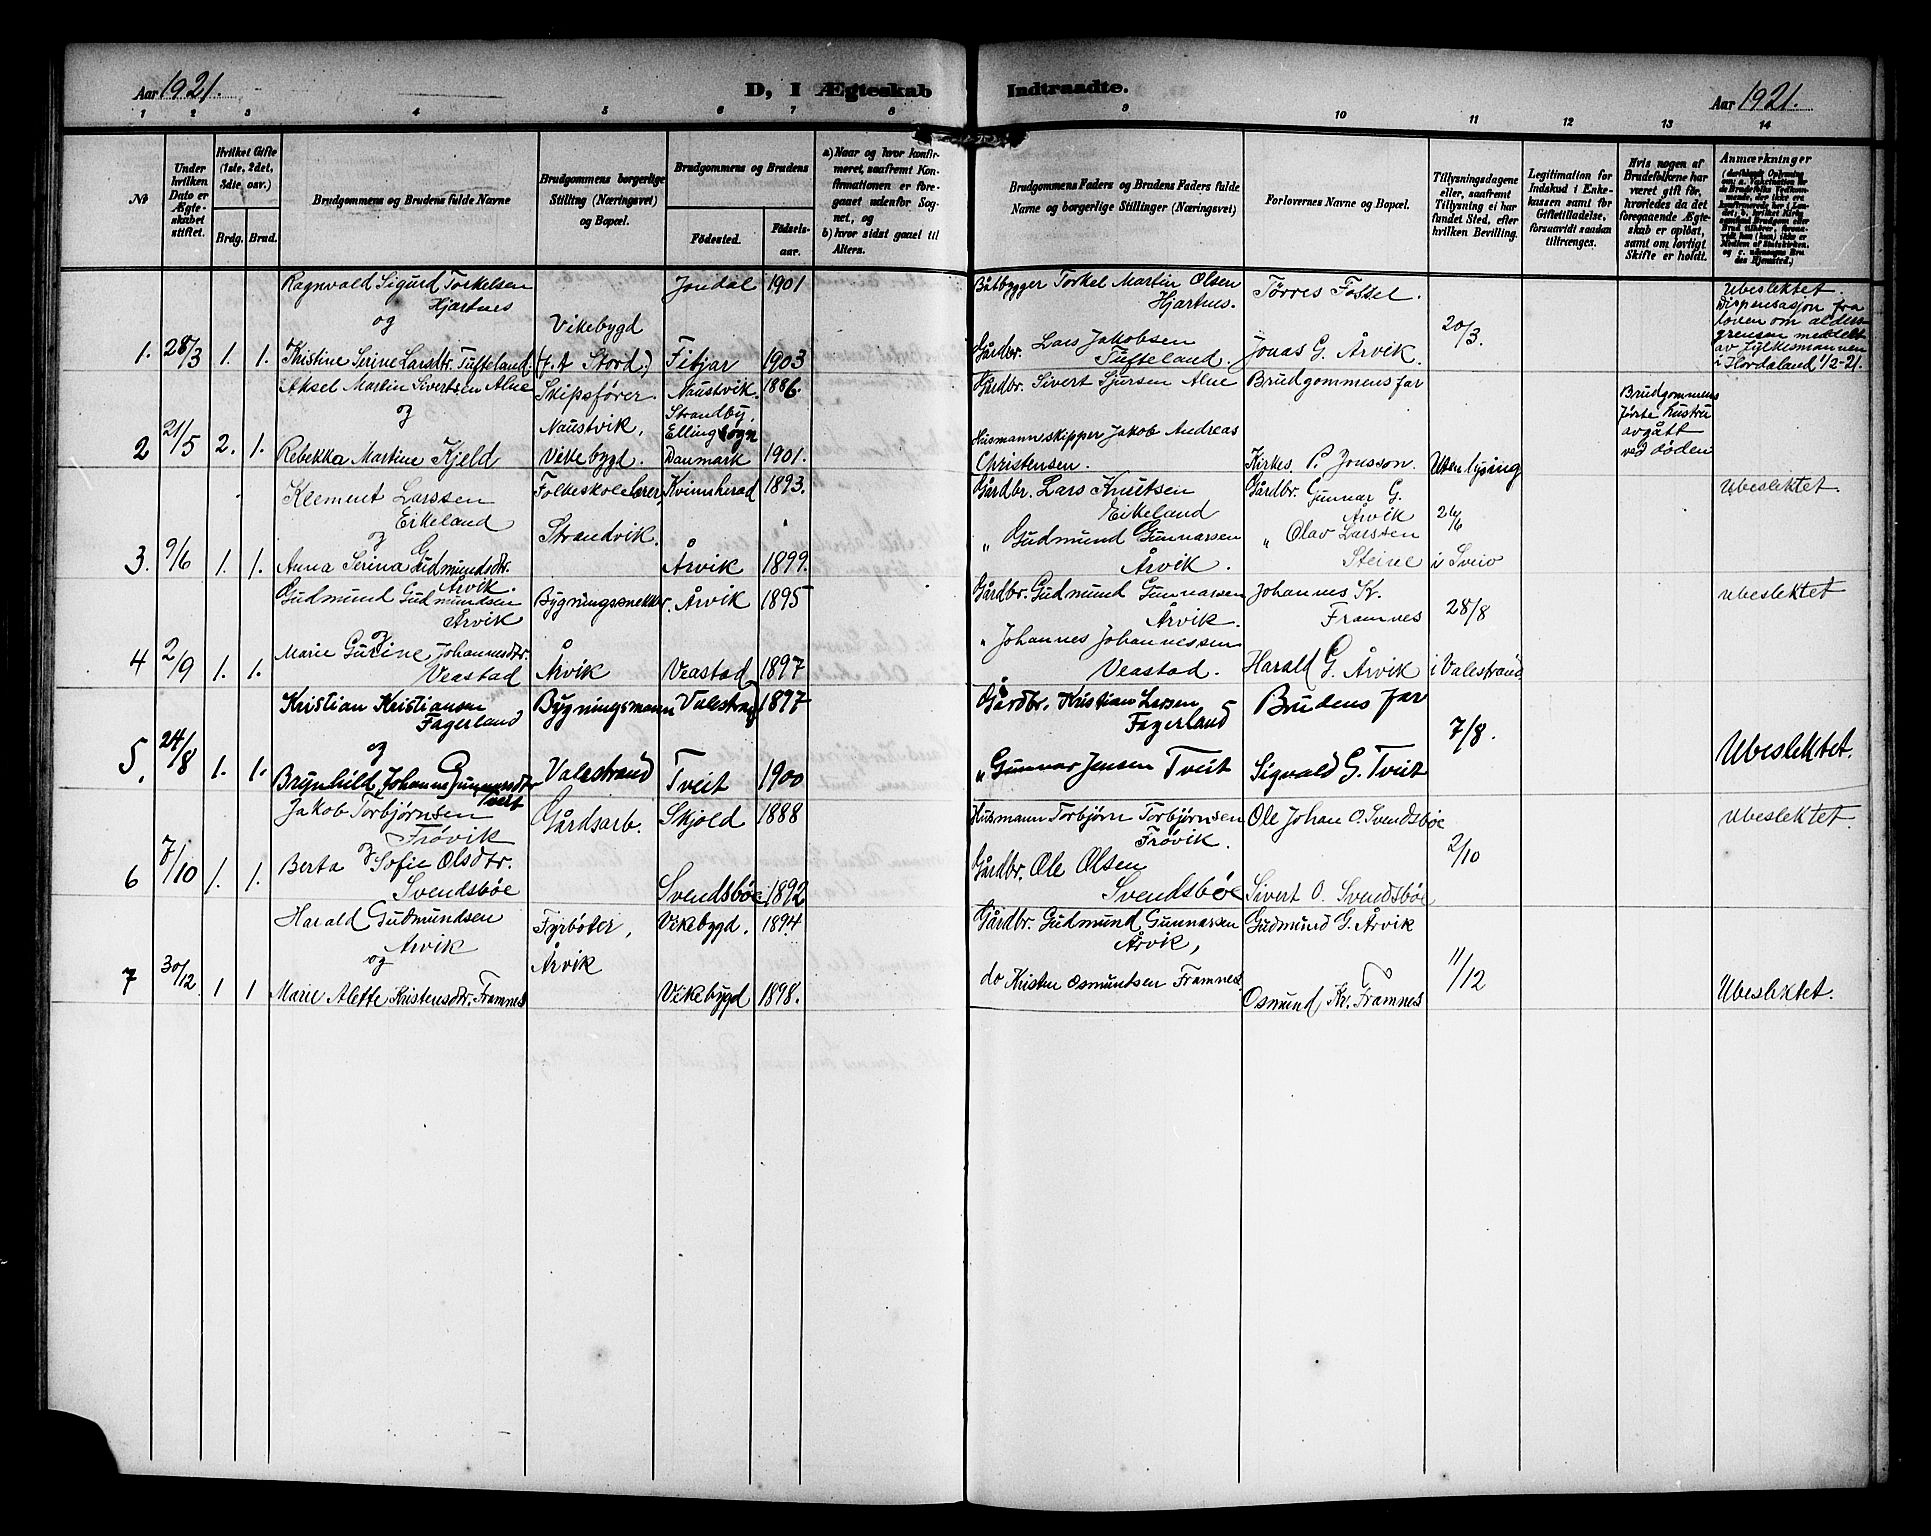 Aar 1921.
D, I Ægteskab Indtraadte.
Aar 1921.
1 2 3 4 5 6 7 8 9 10 11 12 13 14
№
Under hvilken Dato er Ægteskabet stiftet.
Hvilket Gifte (1ste, 2det, 3die, osv.)
Brdg. Brud.
Brudgommens og Brudens fulde Navne
Brudgommens borgerlige Stilling (Næringsvei) og Bopæl.
Brudgommens og Brudens
Födested.
Födselsaar.
a) Naar og hvor konfirmeret, saafremt Konfirmationen er foregaaet udenfor Sognet, og
b) hvor sidst gaaet til Alters.
Brudgommens Faders og Brudens Faders fulde Navne og borgerlige Stillinger (Næringsvei)
Forlovernes Navne og Bopæl.
Tillysningsdagene eller, saafremt Tillysning ei har fundet Sted, efter hvilken Bevilling.
Legitimation for Indskud i Enkekassen samt for Giftetilladelse, forsaavidt saadan tiltrænges.
Hvis nogen af Brudefolkene har været gift för, hvorledes da det foregaaende Ægteskab er oplöst, samt om lovligt Skifte er holdt.
Anmærkninger
Ragnvald Sigurd Torkelsen Jondal 1901 Båtbygger Torkel Martin Olsen Tørres Fossel. Ubeslektet.
Hjartnes Hjartnes. Dispensasjon fra
og Vikebygd 20/3. loven om alders
1. 28/3 1. 1. Kristine Serine Larsdtr. Tufteland. (f. A Stord.) Fitjar 1903 Gårdbr. Lars Jakobsen Tufteland. Jonas G. Årvik. grensen meddelt
av Fylkesmannen
i Hordaland 1/2-21.
Aksel Martin Sivertsen Alne Skipsfører. Naustvik. 1886. Gårdbr. Sivert Sjursen Alne Brudgommens far Brudgommens
og Naustvik, Strandby, første hustru
Elling sogn avgått
2 21/5 2. 1. Rebekka Martine Kjeld Vikebygd. Danmark 1901. Husmann skipper Jakob Andreas Christensen. Kirkes. P. Jonsson. Uten lysing ved døden
Klement Larssen Folkeskolelærer, Kvinnherad 1893. Gårdbr. Lars Knutsen Gårdbr. Gunnar G. Ubeslektet.
Eikeland Eikeland Årvik
og Strandvik. " Gudmund Gunnarsen " Olav Larssen
3. 9/6 1. 1. Anna Serina Gudmundsdtr. Årvik. Årvik 1899. Årvik. Steine i Sveio
Gudmund Gudmundsen Bygningssnekker, Årvik 1895 Gårdbr. Gudmund Gunnarsen Johannes K. Ubeslektet
Årvik Årvik. Framnes 28/8
og " Johannes Johannessen
4 2/9 1. 1. Marie Gurine Johannesdtr. Veastad Årvik Veastad 1897 Veastad. Harald G. Årvik i Valestrand
Kristian Kristiansen Bygningsmann Valestrand 1897 Gårdbr. Kristian Larsen Brudens far
Fagerland Fagerland
og 7/8.
5. 24/8 1. 1. Brynhild Johanne Gunnarsdtr Tveit Valestrand Tveit 1900 " Gunnar Jensen Tveit Sigvald G. Tveit Ubeslektet.
Jakob Torbjørnsen Gårdsarb. Skjold 1888 Husmann Torbjørn Torbjørnsen Ole Johan O. Svendsbøe Ubeslektet.
Frøvik Frøvik.
og 2/10
6 7/10 1. 1. Berta Sofie Olsdtr. Svendsbøe Svendsbøe 1892 Gårdbr. Ole Olsen Svendsbøe Sivert O. Svendsbøe
Harald Gudmundsen Fyrbøter, Vikebygd. 1894 Gårdbr. Gudmund Gunnarsen Gudmund G. Årvik
Årvik Årvik,
og Årvik 11/12
7 30/12 1 1 Marie Alette Kristensdtr. Framnes Vikebygd 1898. do Kristen Osmundsen Framnes. Osmund Kr. Framnes Ubeslektet.